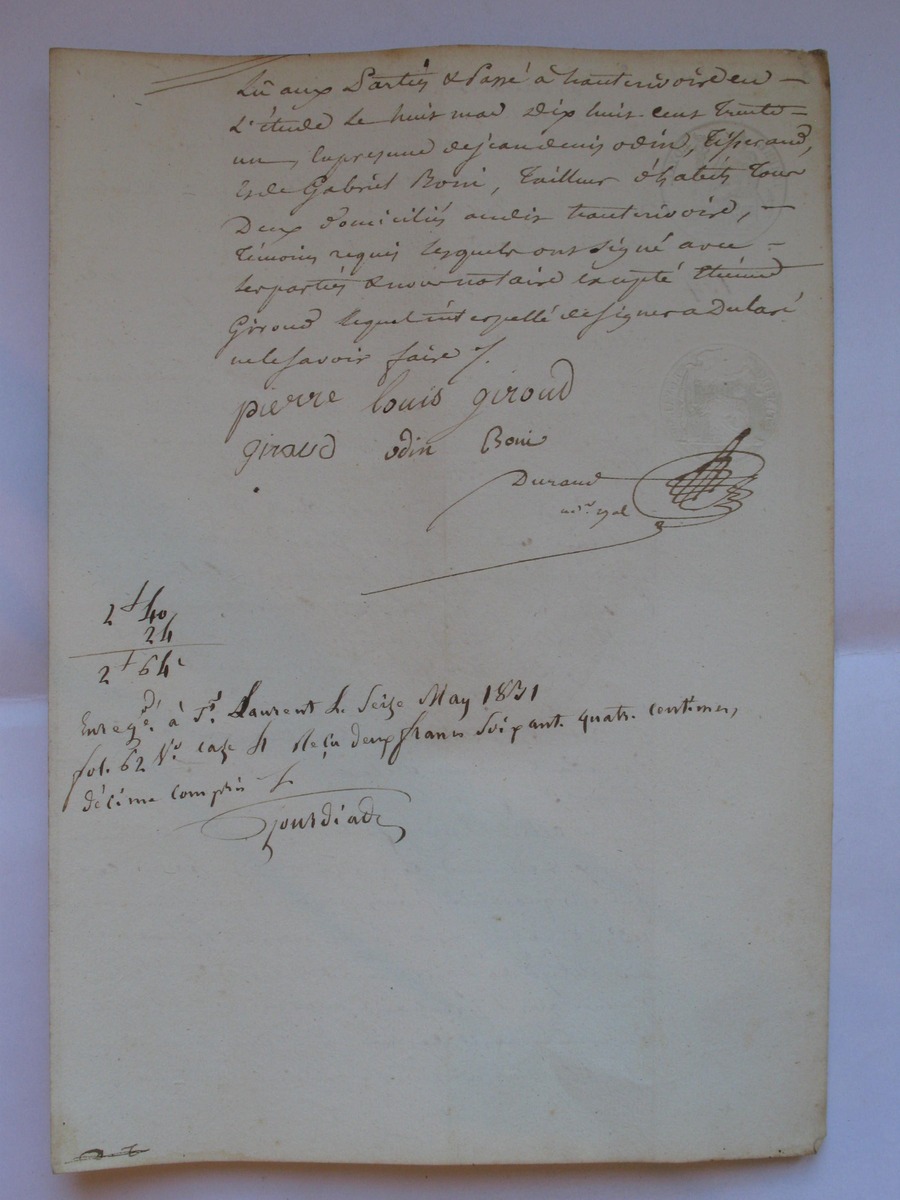 Lû aux Parties & Passé à hauterivoire en
L'étude Le huit mai dix huit cent Trente
un, En presence de jean denis odin, Tisserand,
Et de Gabriel Boni, Tailleur d'habits Tous
Deux domiciliés audit hauterivoire,
Témoins requis lesquels ont signé avec
les parties & nous notaire excepté Etienne
Giroud lequel interpellé de signer a Declaré
ne le savoir faire
pierre louis giroud
giraud odin Boni
Durand
2 f 40
24
2 f 64 c
Enregé. à St. Laurent Le Seize May 1831
fol. 62 Vo. case 4 Reçu deux francs Soixante quatre centimes,
décime compris
Jourdiade